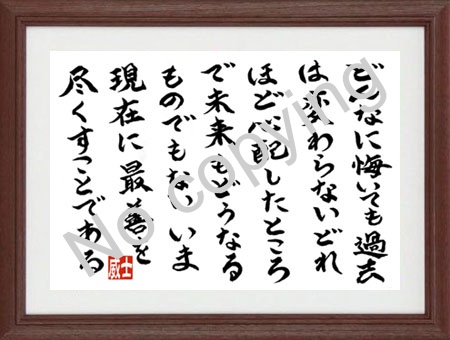 どんなに悔いても過去
は変わらないどれ
ほど心配したところ
で未来もどうなる
ものでもないいま
現在に最善を
尽くすことである
威士
No copying